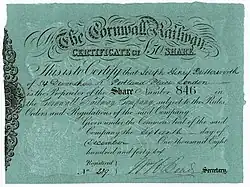 The Cornwall Railway
CERTIFICATE OF SHARE
This is to Certify that Joseph Henry Butterworth
of 14 Devonshire Portland Place London
is the Proprietor of the Share Number 846 in
the Cornwall Railway Company, subject to the Rules,
Orders and Regulations of the said Company.
Given under the Common Seal of the said
Company the day of
December One Thousand Eight
hundred and forty
Registered
No.
Secretary.